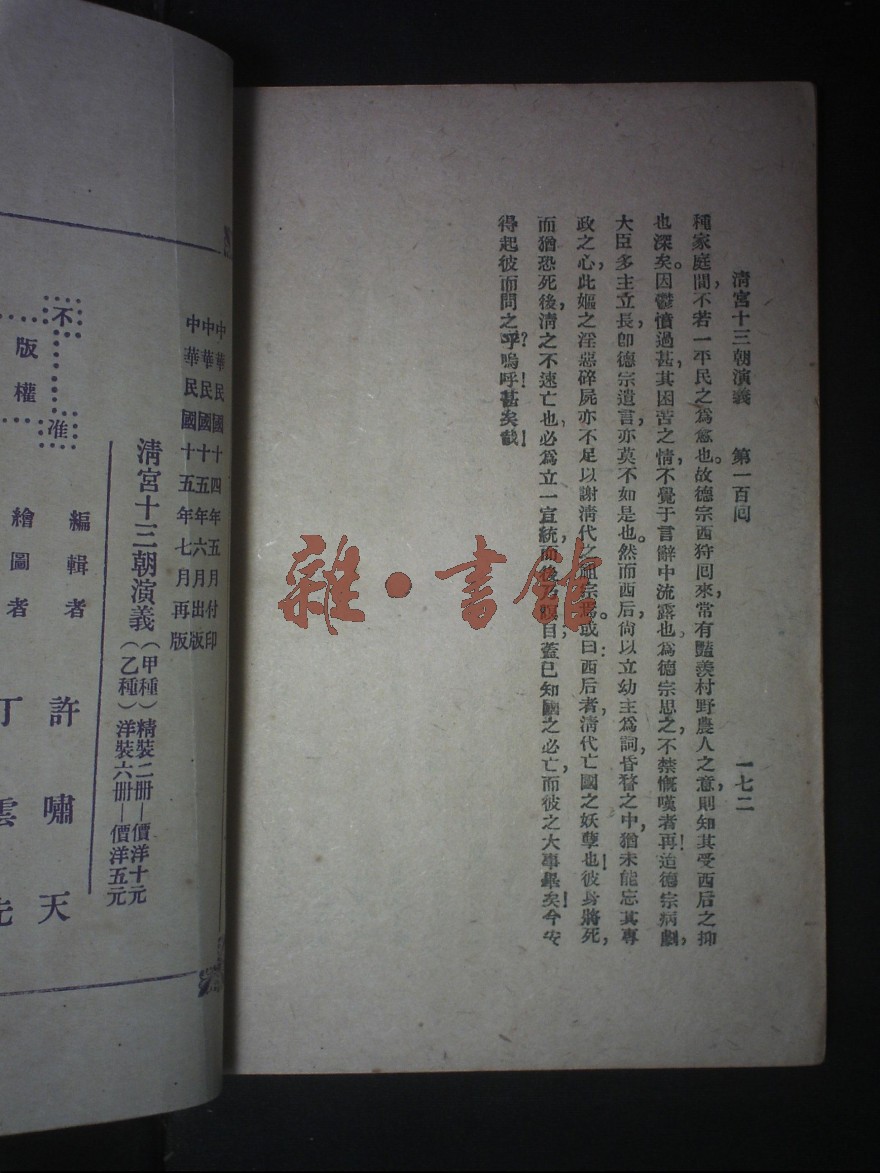 清宮十三朝演義　第一百回　一七二
種家庭間，不若一平民之爲愈也。故德宗西狩回來，常有豔羨村野農人之意，則知其受西后之抑
也深矣。因鬱憤過甚，其困苦之情，不覺于言辭中流露也。爲德宗思之，不禁慨嘆者再！迨德宗病劇，
大臣多主立長，卽德宗遺言，亦莫不如是也。然而西后，尙以立幼主爲詞，昏瞀之中，猶未能忘其專
政之心，此嫗之淫惡，碎屍亦不足以謝淸代之祖宗焉。或曰：西后者，淸代亡國之妖孽也！彼身將死，
而猶恐死後，淸之不速亡也，必爲立一宣統，而後 瞑目，蓋已知國之必亡，而彼之大事畢矣！今安
得起彼而問之乎？嗚呼！甚矣哉！
中華民國十四年五月付印
中華民國十五年六月出版
中華民國十五年七月再版
淸宮十三朝演義（甲種）精裝二册—價洋十元
（乙種）洋裝六册—價洋五元
編輯者　許嘯天
繪圖者　丁雲先
版權
不准
雜·書館